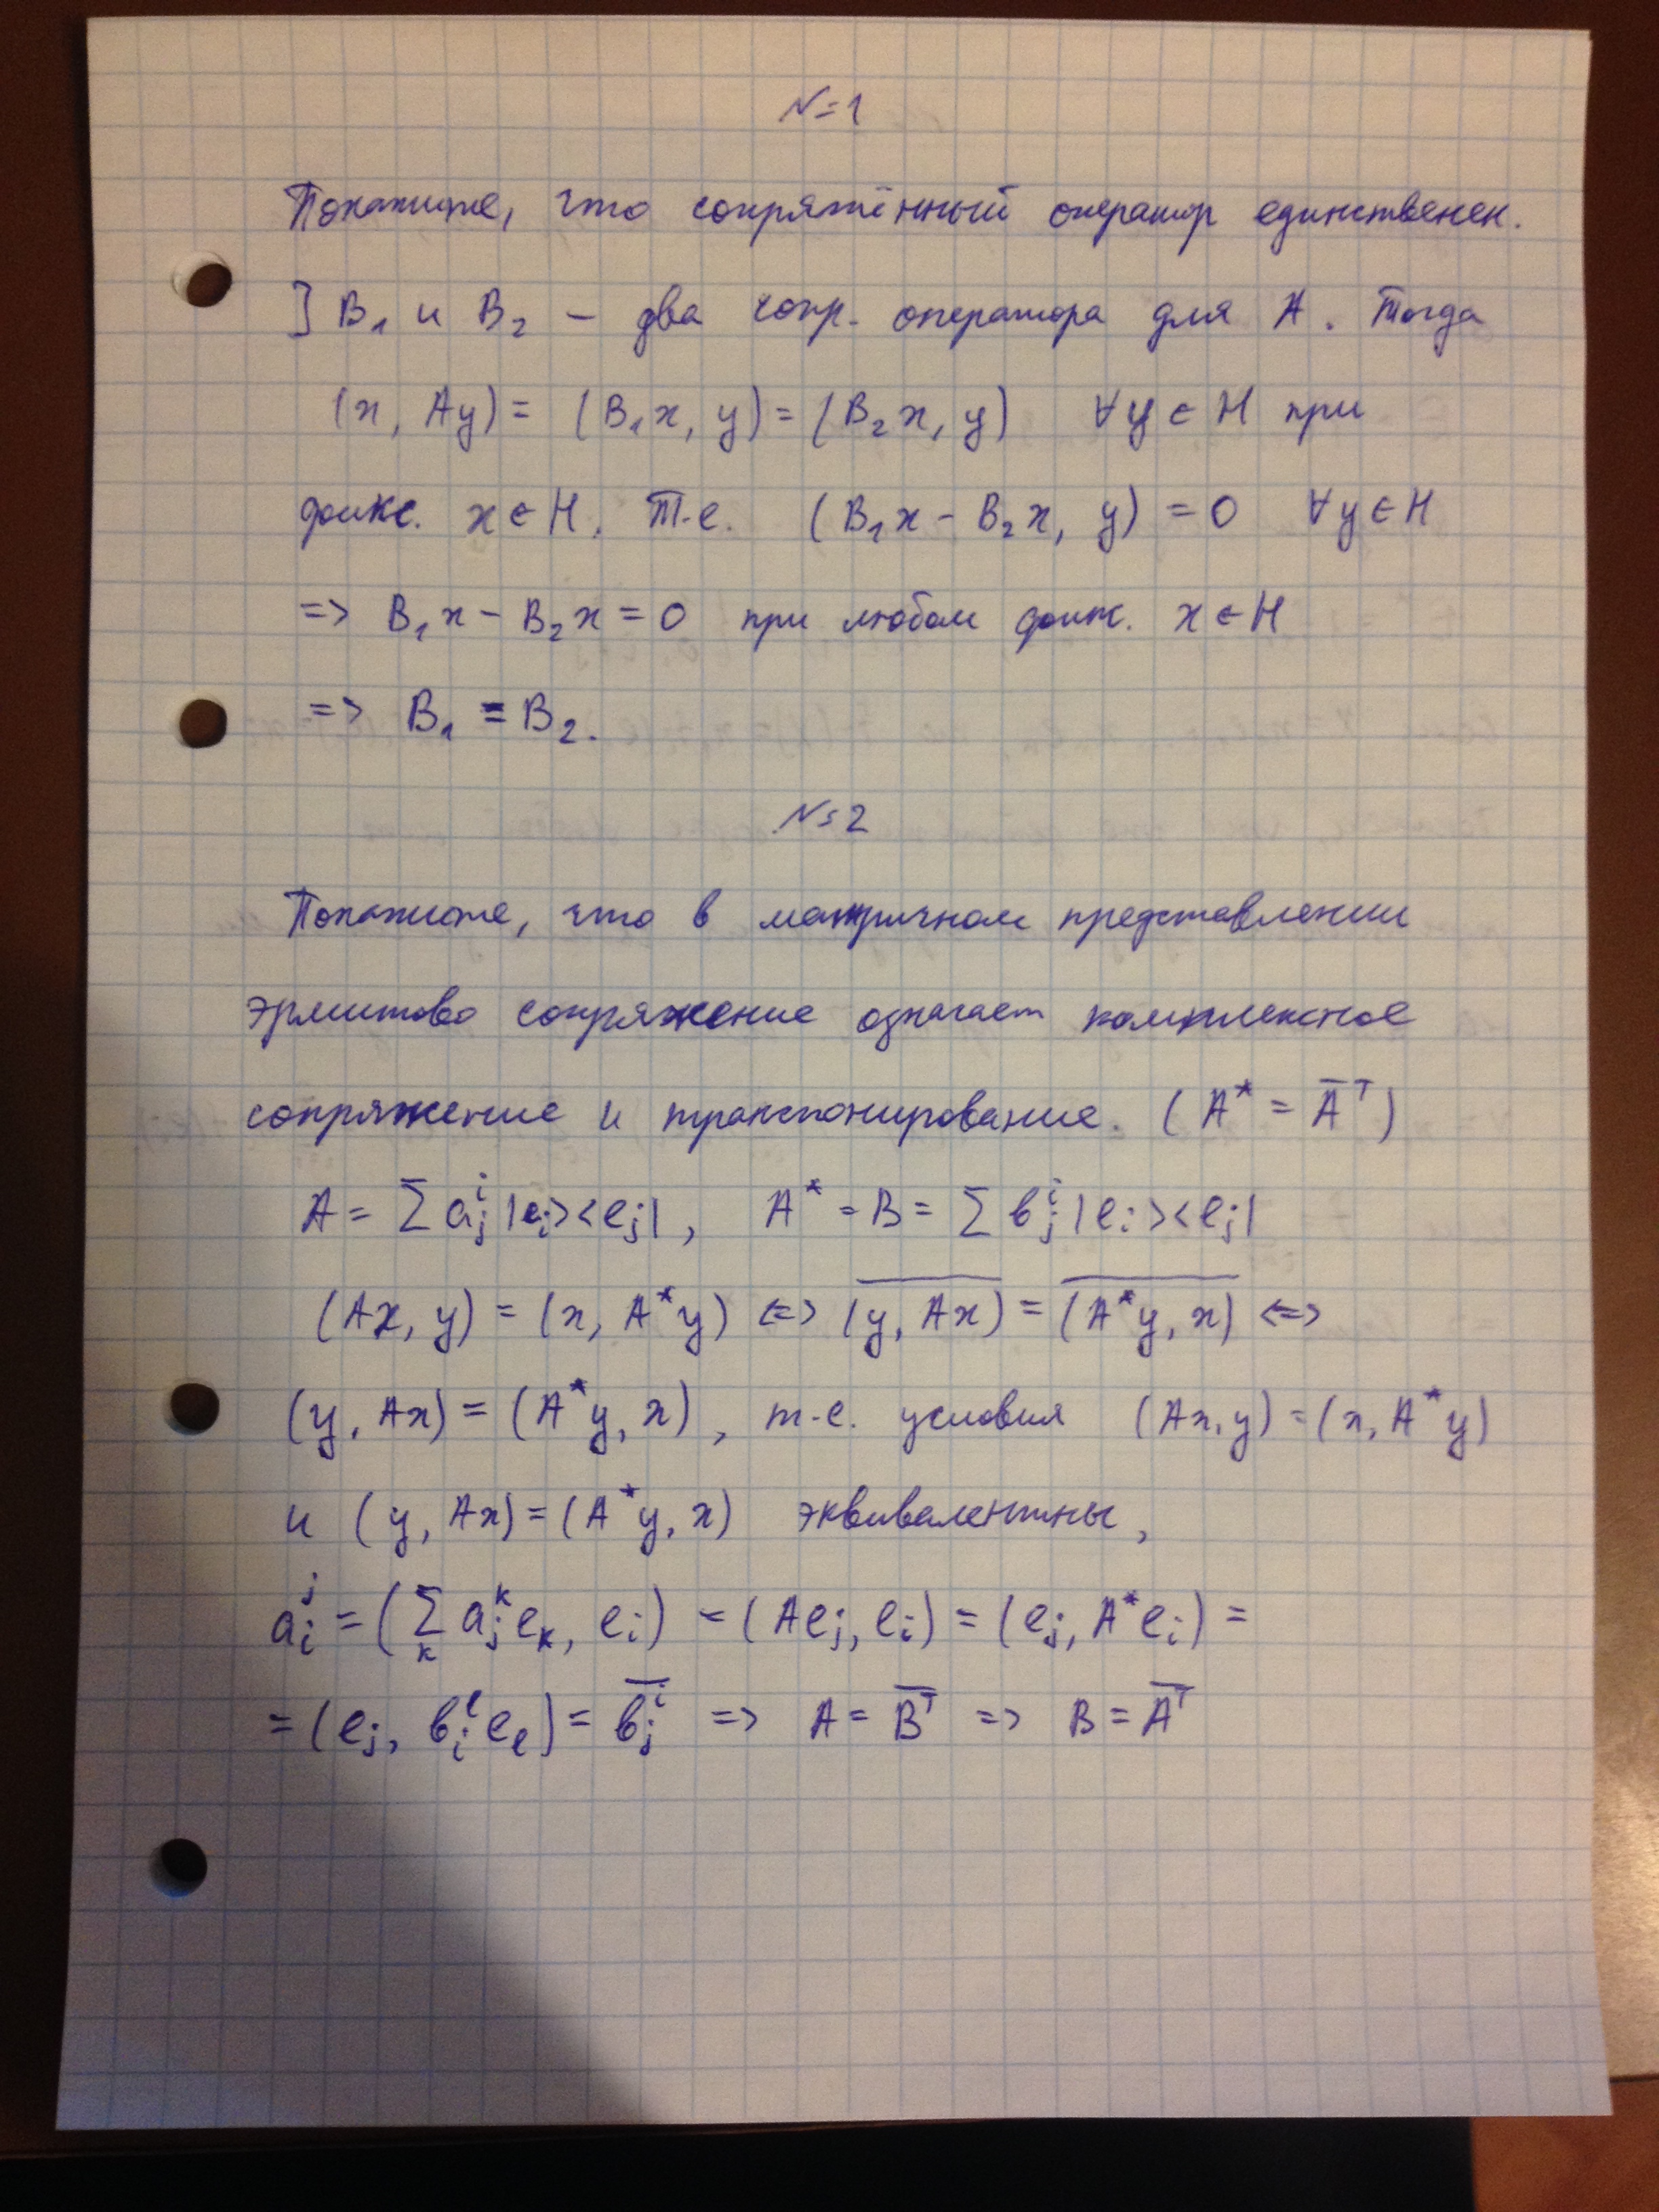 №1
Покажите, что сопряжённый оператор единственен.
] B₁ и B₂ – два сопр. оператора для A. Тогда
(x, Ay) = (B₁x, y) = (B₂x, y) ∀y ∈ H при
фикс. x ∈ H. Т.е. (B₁x – B₂x, y) = 0 ∀y ∈ H
=> B₁x – B₂x = 0 при любом фикс. x ∈ H
=> B₁ = B₂.
№2
Покажите, что в матричном представлении
эрмитово сопряжение означает комплексное
сопряжение и транспонирование. (A* = A̅ᵀ)
A = Σ aⱼⁱ |eᵢ><eⱼ|, A* = B = Σ bⱼⁱ |eᵢ><eⱼ|
(Ax, y) = (x, A*y) <=> \overline{(y, Ax)} = \overline{(A*y, x)} <=>
(y, Ax) = (A*y, x), т.е. условия (Ax, y) = (x, A*y)
и (y, Ax) = (A*y, x) эквивалентны,
aᵢʲ = (Σₖ aⱼᵏ eₖ, eᵢ) = (Aeⱼ, eᵢ) = (eⱼ, A*eᵢ) =
= (eⱼ, bᵢˡ eₗ) = \overline{bⱼⁱ} => A = B̅ᵀ => B = A̅ᵀ